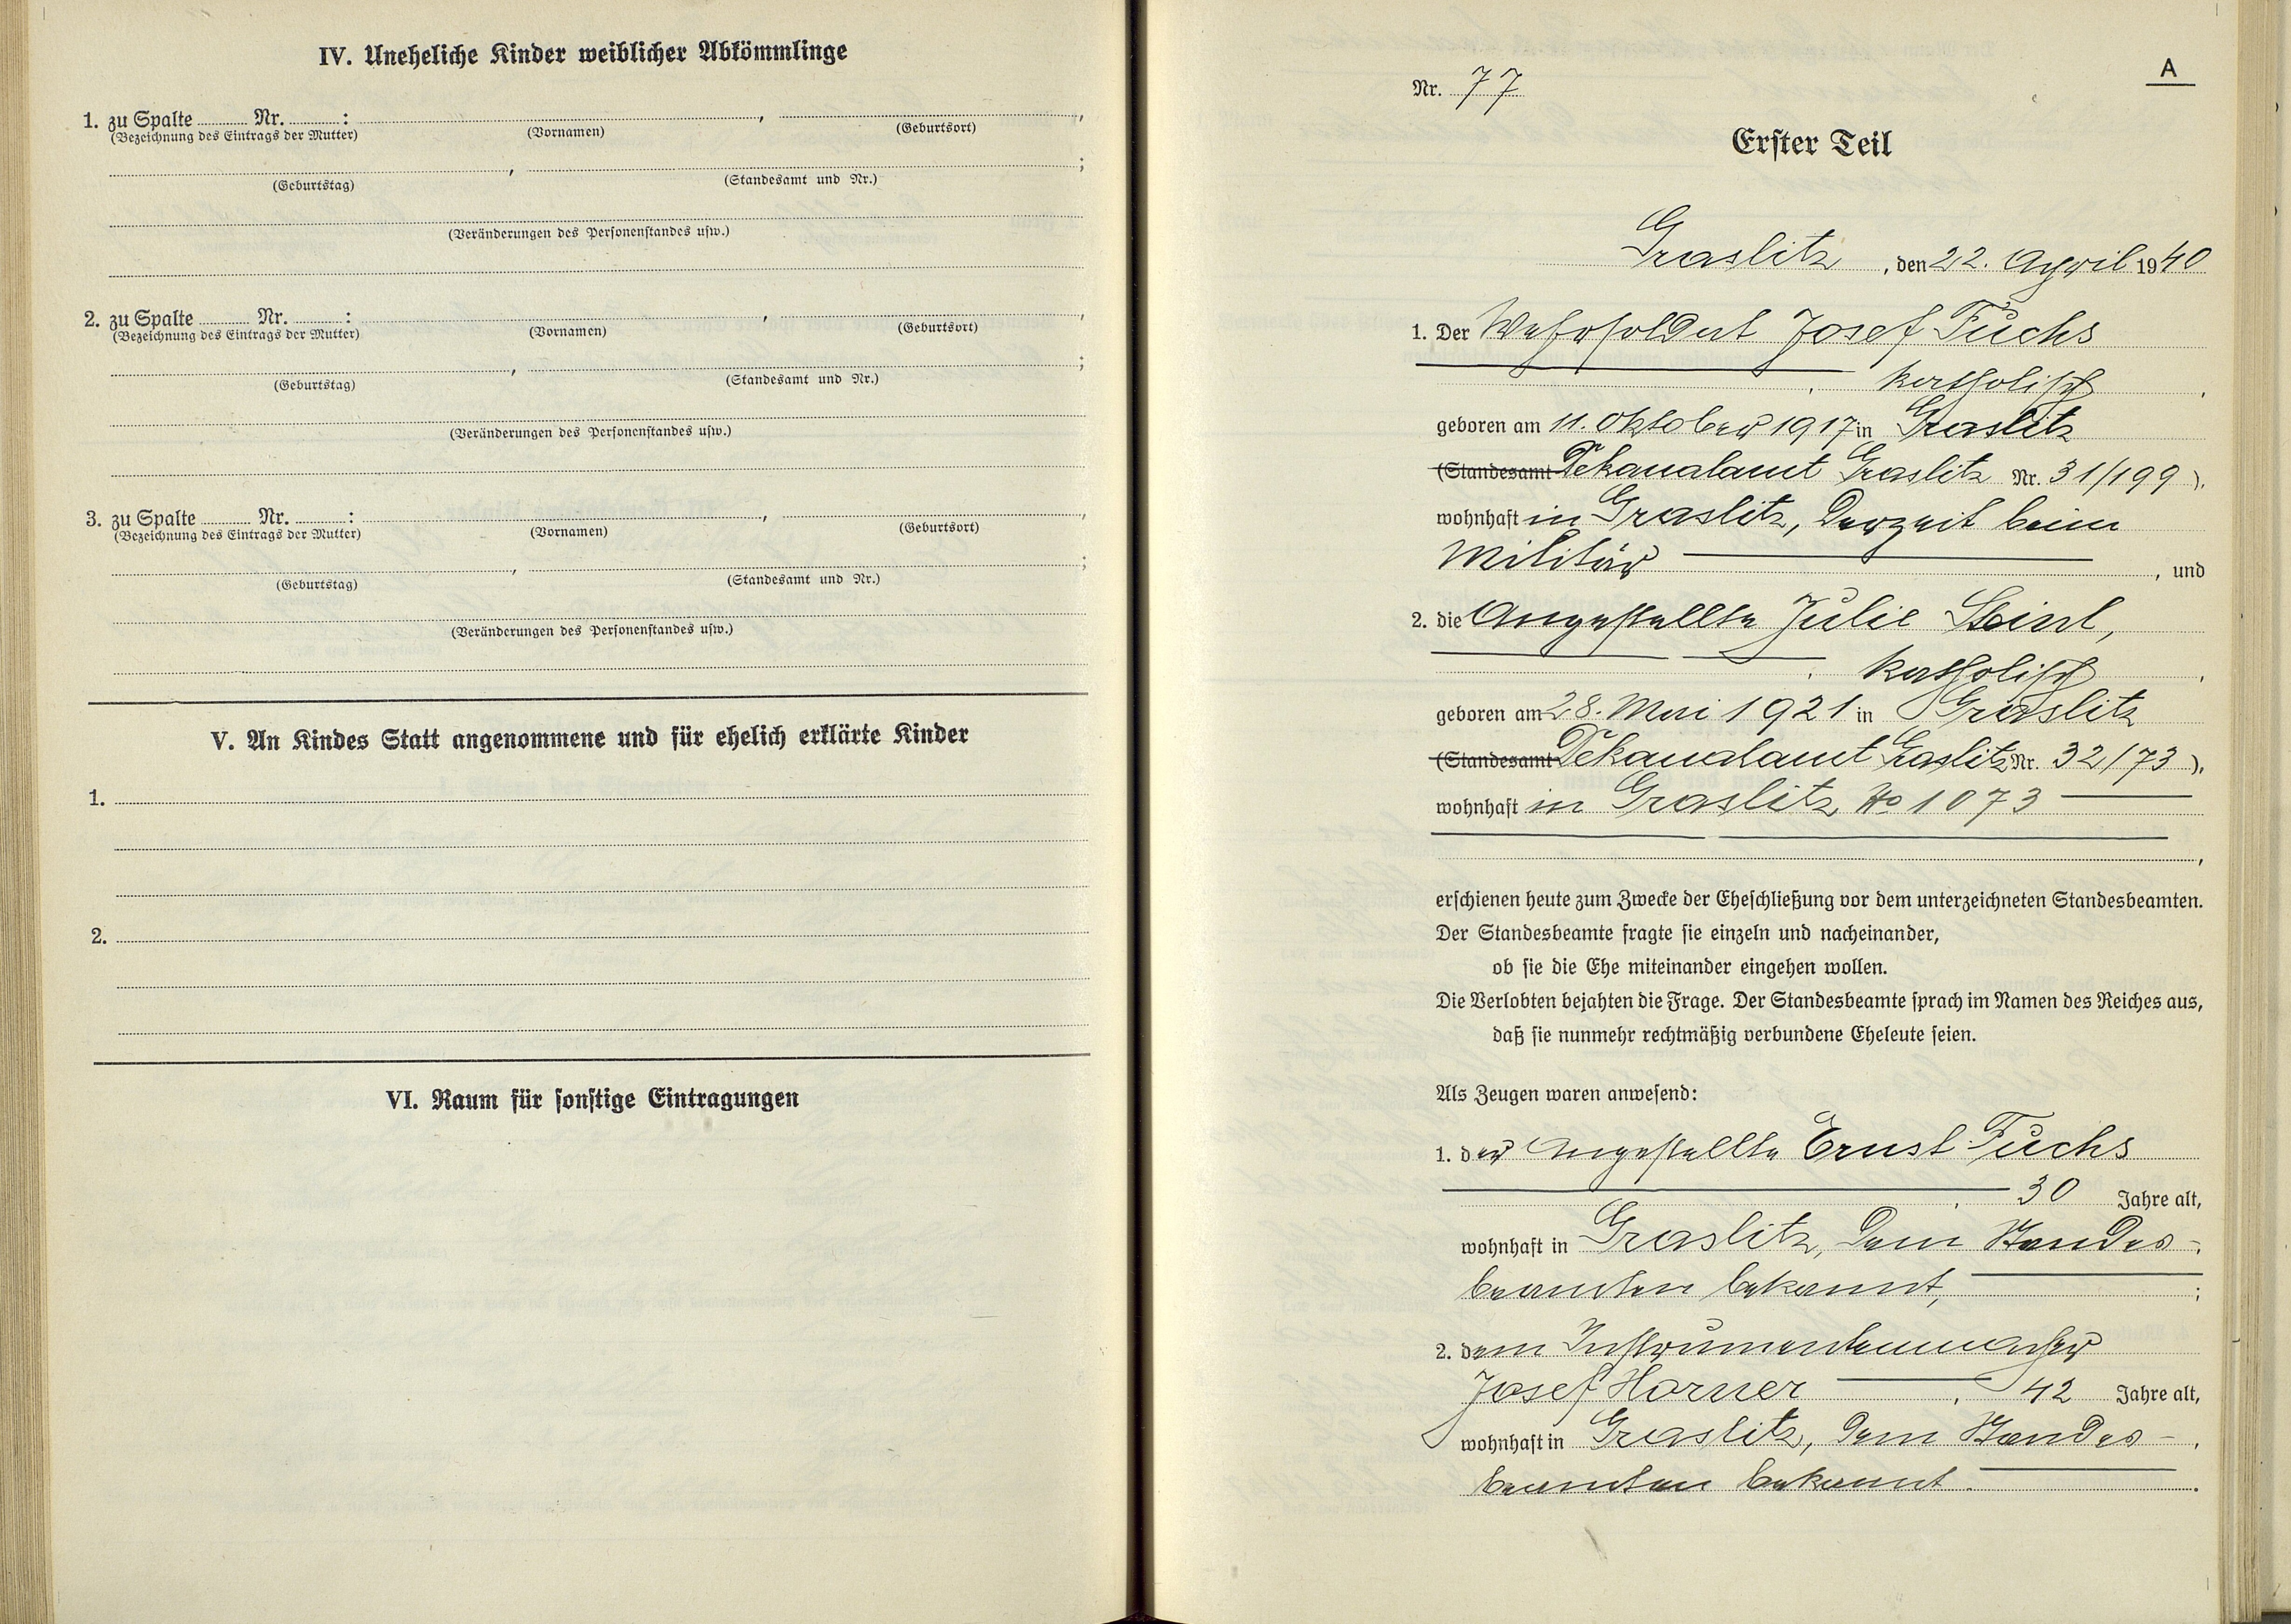 IV. Uneheliche Kinder weiblicher Abkömmlinge
1. zu Spalte ........ Nr. ........ :
(Bezeichnung des Eintrags der Mutter) (Vornamen) (Geburtsort)
(Geburtstag) (Standesamt und Nr.)
(Veränderungen des Personenstandes usw.)
2. zu Spalte ........ Nr. ........ :
(Bezeichnung des Eintrags der Mutter) (Vornamen) (Geburtsort)
(Geburtstag) (Standesamt und Nr.)
(Veränderungen des Personenstandes usw.)
3. zu Spalte ........ Nr. ........ :
(Bezeichnung des Eintrags der Mutter) (Vornamen) (Geburtsort)
(Geburtstag) (Standesamt und Nr.)
(Veränderungen des Personenstandes usw.)
V. An Kindes Statt angenommene und für ehelich erklärte Kinder
1.
2.
VI. Raum für sonstige Eintragungen
A
Nr. 77
Erster Teil
Graslitz, den 22. April 1940
1. Der Josef Fuchs
katholisch,
geboren am 11. Oktober 1917 in Graslitz
(Standesamt Dekanalamt Graslitz Nr. 31/199),
wohnhaft in Graslitz, derzeit beim
Militär, und
2. die Angestellte Julie Steinl,
katholisch,
geboren am 28. Mai 1921 in Graslitz
(Standesamt Dekanalamt Graslitz Nr. 32/73),
wohnhaft in Graslitz No 1073
,
erschienen heute zum Zwecke der Eheschließung vor dem unterzeichneten Standesbeamten.
Der Standesbeamte fragte sie einzeln und nacheinander,
ob sie die Ehe miteinander eingehen wollen.
Die Verlobten bejahten die Frage. Der Standesbeamte sprach im Namen des Reiches aus,
daß sie nunmehr rechtmäßig verbundene Eheleute seien.
Als Zeugen waren anwesend:
1. der Angestellte Ernst Fuchs
, 30 Jahre alt,
wohnhaft in Graslitz, dem Standes-
beamten bekannt, ;
2. dem Instrumentenmacher
Josef Horner, 42 Jahre alt,
wohnhaft in Graslitz, dem Standes-
beamten bekannt.